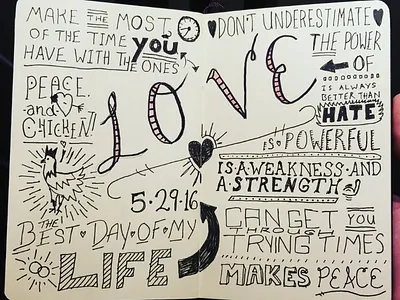 MAKE THE MOST
OF THE TIME you
HAVE WITH THE ONES
PEACE
and
CHICKEN!
LOVE
5·29·16
THE
BEST · DAY · OF · MY
LIFE
DON'T UNDERESTIMATE
THE POWER
OF
IS ALWAYS
BETTER THAN
HATE
is so POWERFUL
IS·A·WEAKNESS·AND
A·STRENGTH
CAN GET you
THROUGH
TRYING TIMES
MAKES PEACE